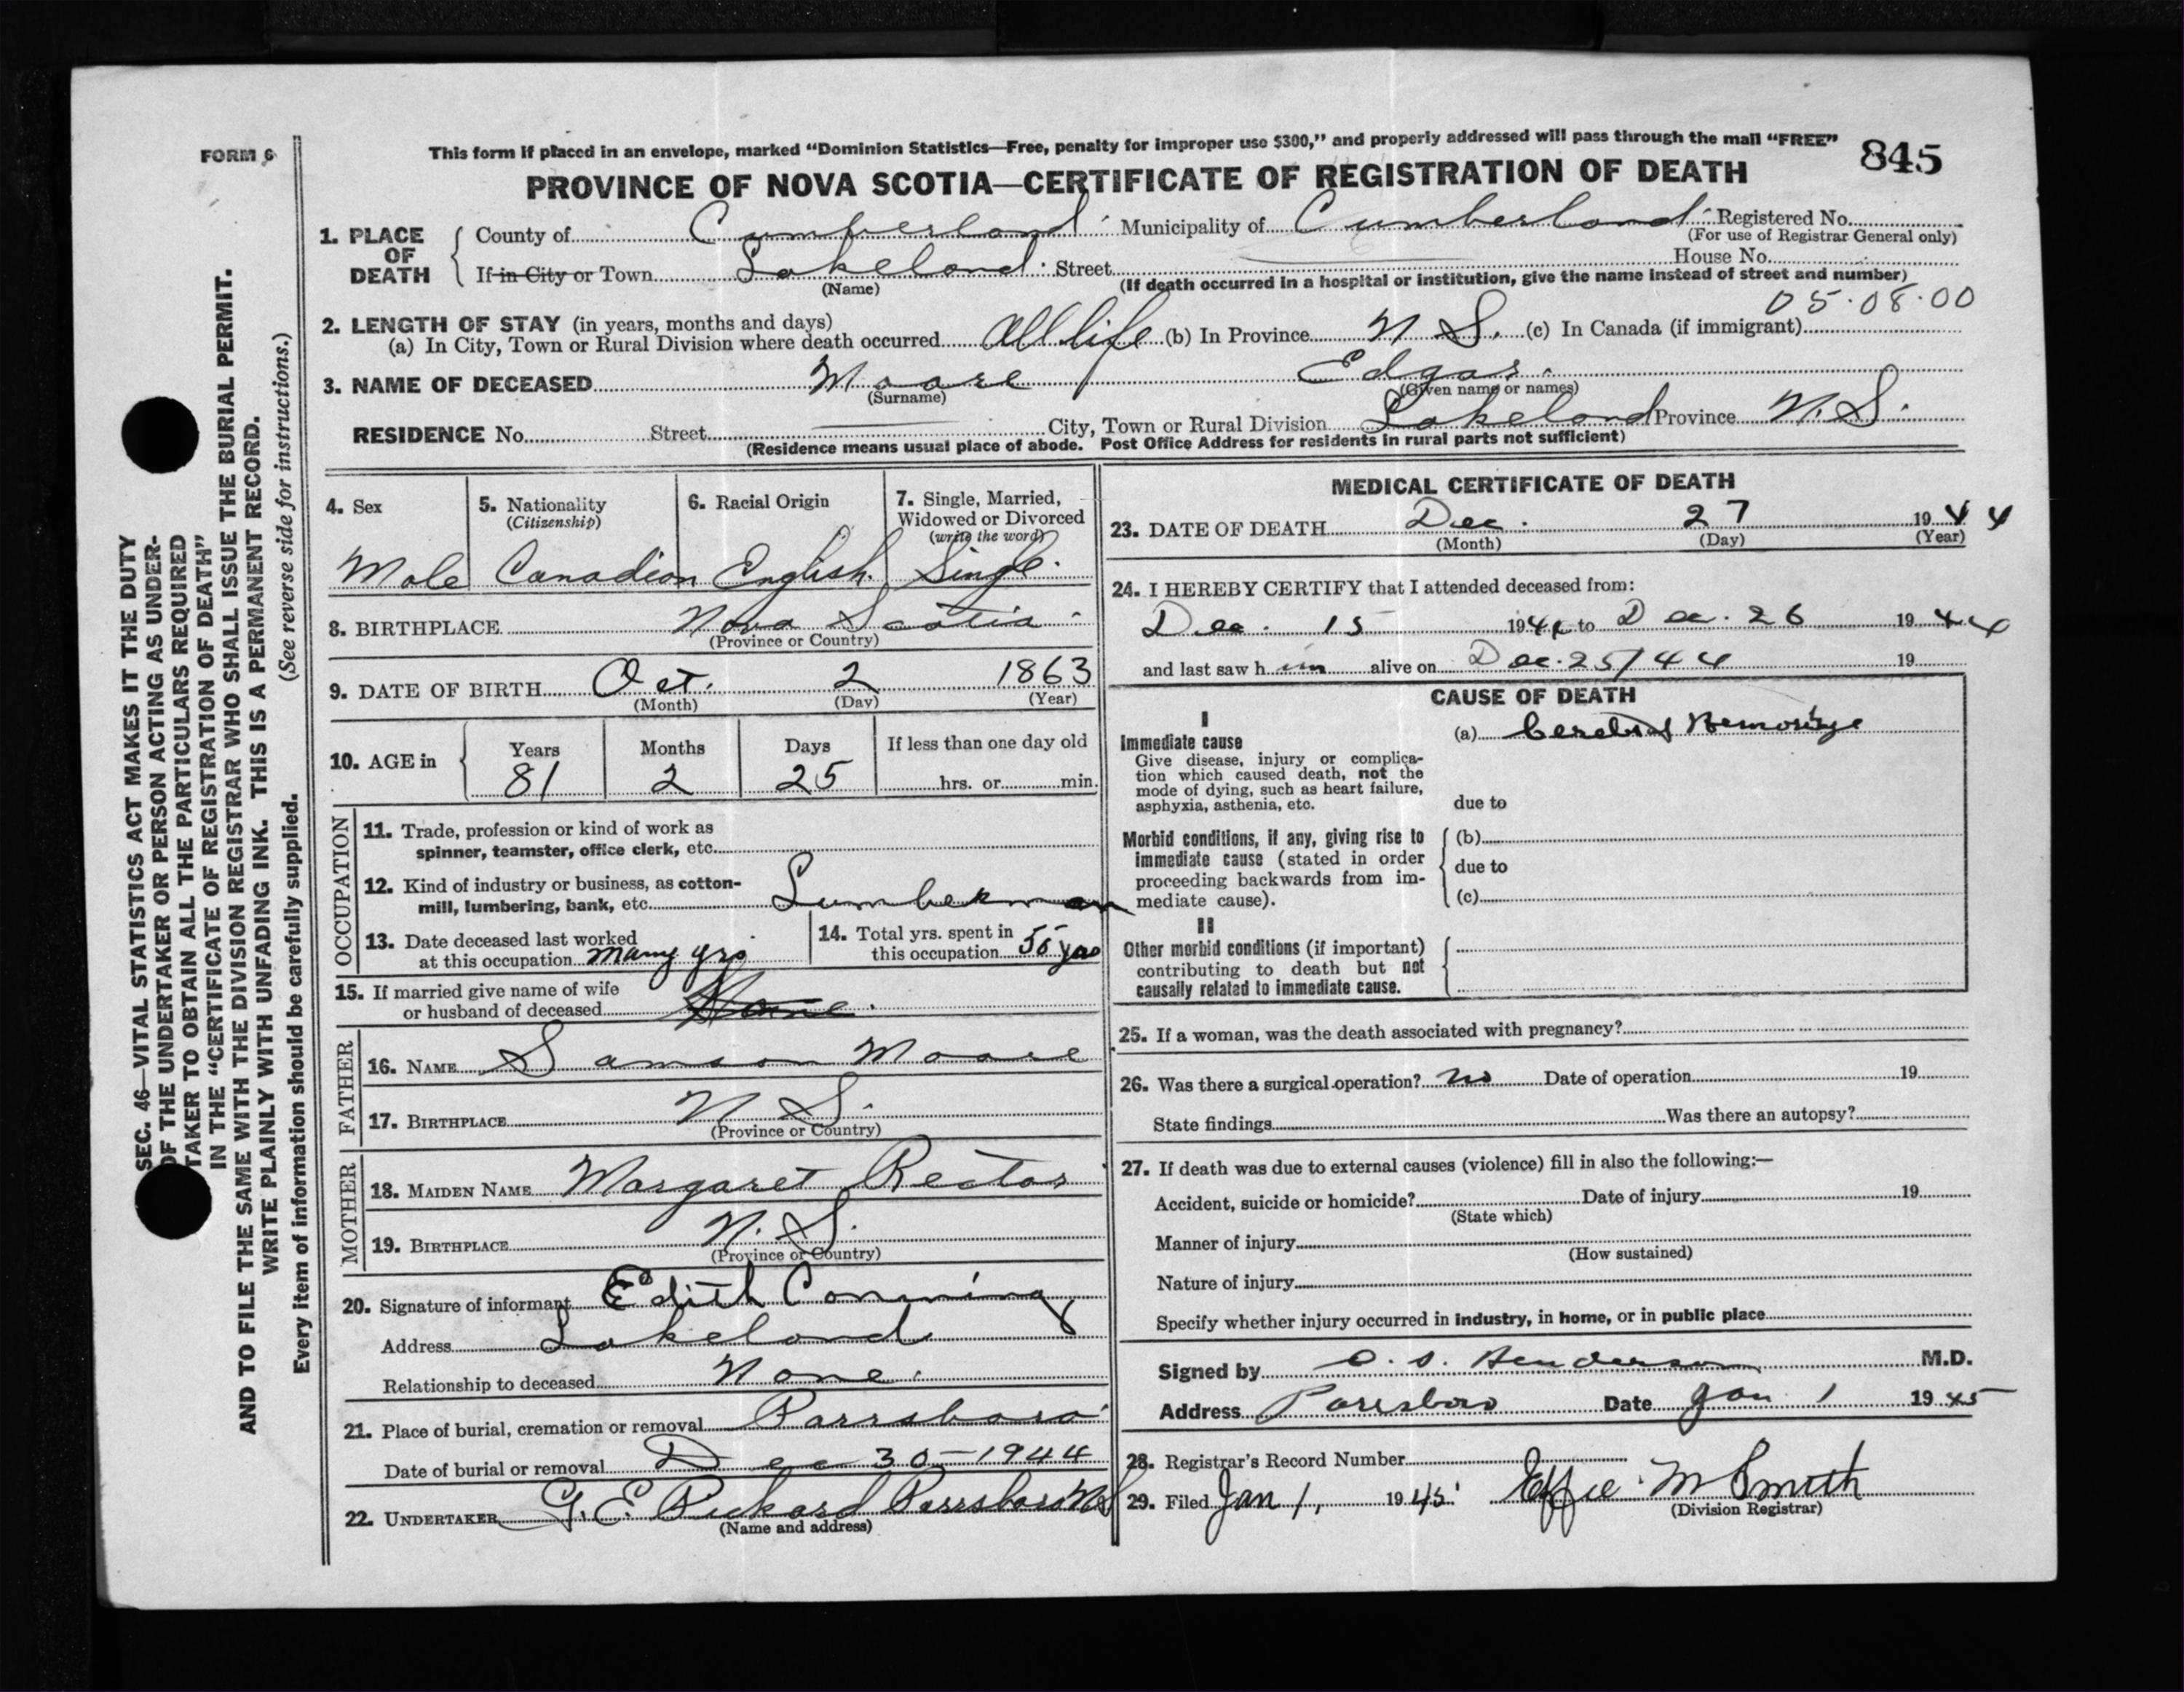 FORM 6
This form if placed in an envelope, marked “Dominion Statistics—Free, penalty for improper use $300,” and properly addressed will pass through the mail “FREE”
845
PROVINCE OF NOVA SCOTIA—CERTIFICATE OF REGISTRATION OF DEATH
1. PLACE OF DEATH
County of Cumberland Municipality of Cumberland Registered No.
(For use of Registrar General only)
If in City or Town Lakeland Street House No.
(Name) (If death occurred in a hospital or institution, give the name instead of street and number)
05·08·00
2. LENGTH OF STAY (in years, months and days)
(a) In City, Town or Rural Division where death occurred All life (b) In Province N S. (c) In Canada (if immigrant)
3. NAME OF DECEASED Moore Edgar
(Surname) (Given name or names)
RESIDENCE No. Street City, Town or Rural Division Lakeland Province N.S.
(Residence means usual place of abode. Post Office Address for residents in rural parts not sufficient)
4. Sex
Male
5. Nationality
(Citizenship)
Canadian
6. Racial Origin
English
7. Single, Married,
Widowed or Divorced
(write the word)
Single
8. BIRTHPLACE Nova Scotia
(Province or Country)
9. DATE OF BIRTH Oct. 2 1863
(Month) (Day) (Year)
10. AGE in
Years Months Days If less than one day old
81 2 25 hrs. or min.
OCCUPATION
11. Trade, profession or kind of work as
spinner, teamster, office clerk, etc.
12. Kind of industry or business, as cotton-
mill, lumbering, bank, etc. Lumberman
13. Date deceased last worked
at this occupation many yrs
14. Total yrs. spent in
this occupation 55 yrs
15. If married give name of wife
or husband of deceased None
FATHER
16. NAME Samson Moore
17. BIRTHPLACE N S.
(Province or Country)
MOTHER
18. MAIDEN NAME Margaret Rector
19. BIRTHPLACE N. S.
(Province or Country)
20. Signature of informant Edith Conming
Address Lakeland
Relationship to deceased None
21. Place of burial, cremation or removal Parrsboro
Date of burial or removal Dec 30-1944
22. UNDERTAKER G. E. Rickard Parrsboro NS
(Name and address)
MEDICAL CERTIFICATE OF DEATH
23. DATE OF DEATH Dec. 27 1944
(Month) (Day) (Year)
24. I HEREBY CERTIFY that I attended deceased from:
Dec. 15 1944 to Dec. 26 1944
and last saw h im alive on Dec. 25/44 19
CAUSE OF DEATH
I
Immediate cause
Give disease, injury or complica-
tion which caused death, not the
mode of dying, such as heart failure,
asphyxia, asthenia, etc.
(a) Cerebral Hemorrage
due to
Morbid conditions, if any, giving rise to
immediate cause (stated in order
proceeding backwards from im-
mediate cause).
(b)
due to
(c)
II
Other morbid conditions (if important)
contributing to death but not
causally related to immediate cause.
25. If a woman, was the death associated with pregnancy?
26. Was there a surgical operation? no Date of operation 19
State findings Was there an autopsy?
27. If death was due to external causes (violence) fill in also the following:—
Accident, suicide or homicide? Date of injury 19
(State which)
Manner of injury
(How sustained)
Nature of injury
Specify whether injury occurred in industry, in home, or in public place
Signed by O. S. Henderson M.D.
Address Parrsboro Date Jan 1 1945
28. Registrar's Record Number
29. Filed Jan 1, 1945 Effie M Smith
(Division Registrar)
SEC. 46—VITAL STATISTICS ACT MAKES IT THE DUTY
OF THE UNDERTAKER OR PERSON ACTING AS UNDER-
TAKER TO OBTAIN ALL THE PARTICULARS REQUIRED
IN THE “CERTIFICATE OF REGISTRATION OF DEATH”
AND TO FILE THE SAME WITH THE DIVISION REGISTRAR WHO SHALL ISSUE THE BURIAL PERMIT.
WRITE PLAINLY WITH UNFADING INK. THIS IS A PERMANENT RECORD.
Every item of information should be carefully supplied. (See reverse side for instructions.)